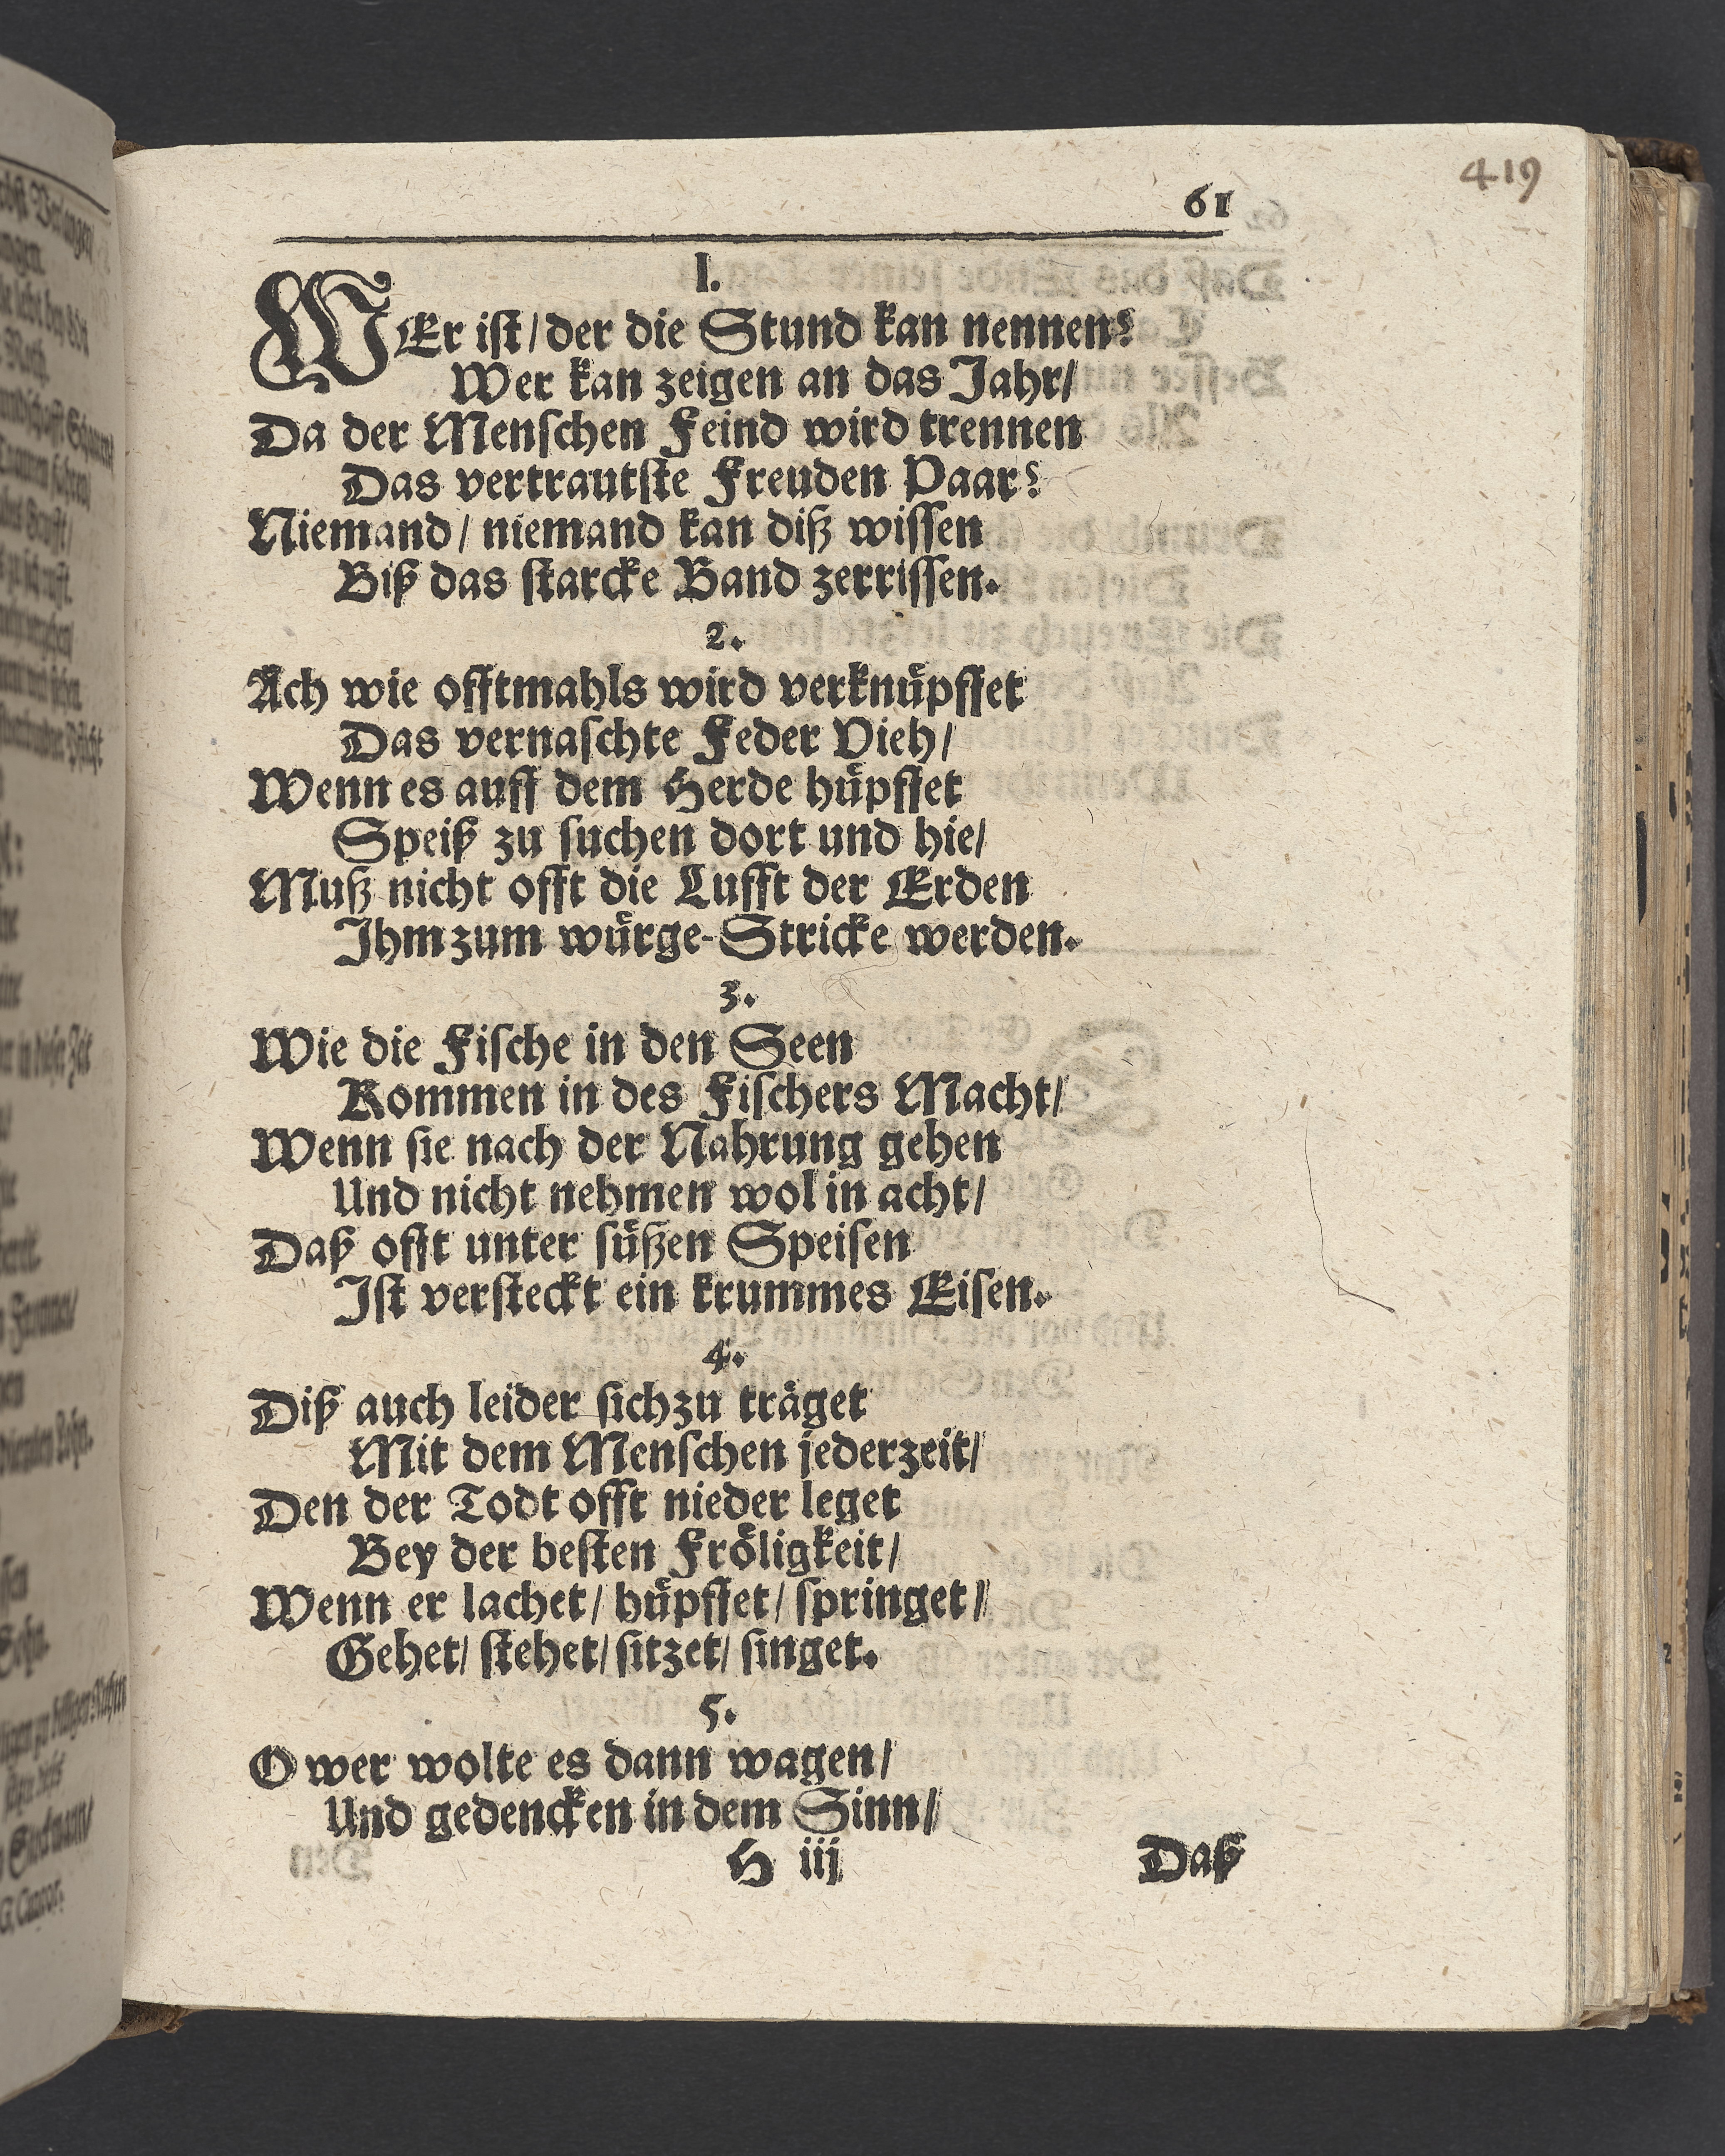 419
61
I.
WEr iſt/ der die Stund kan nennen?
Wer kan zeigen an das Jahr/
Da der Menſchen Feind wird trennen
Das vertrautſte Freuden Paar?
Niemand/ niemand kan diß wiſſen
Biß das ſtarcke Band zerriſſen.
2.
Ach wie offtmahls wird verknuͤpffet
Das vernaſchte Feder Vieh/
Wenn es auff dem Herde huͤpffet
Speiß zu ſuchen dort und hie/
Muß nicht offt die Lufft der Erden
Ihm zum wuͤrge-Stricke werden.
3.
Wie die Fiſche in den Seen
Kommen in des Fiſchers Macht/
Wenn ſie nach der Nahrung gehen
Und nicht nehmen wol in acht/
Daß offt unter ſuͤßen Speiſen
Iſt verſteckt ein krummes Eiſen.
4.
Diß auch leider ſich zu traͤget
Mit dem Menſchen jederzeit/
Den der Todt offt nieder leget
Bey der beſten Froͤligkeit/
Wenn er lachet/ huͤpffet/ ſpringet/
Gehet/ ſtehet/ ſitzet/ ſinget.
5.
O wer wolte es dann wagen/
Und gedencken in dem Sinn/
H iij
Daß